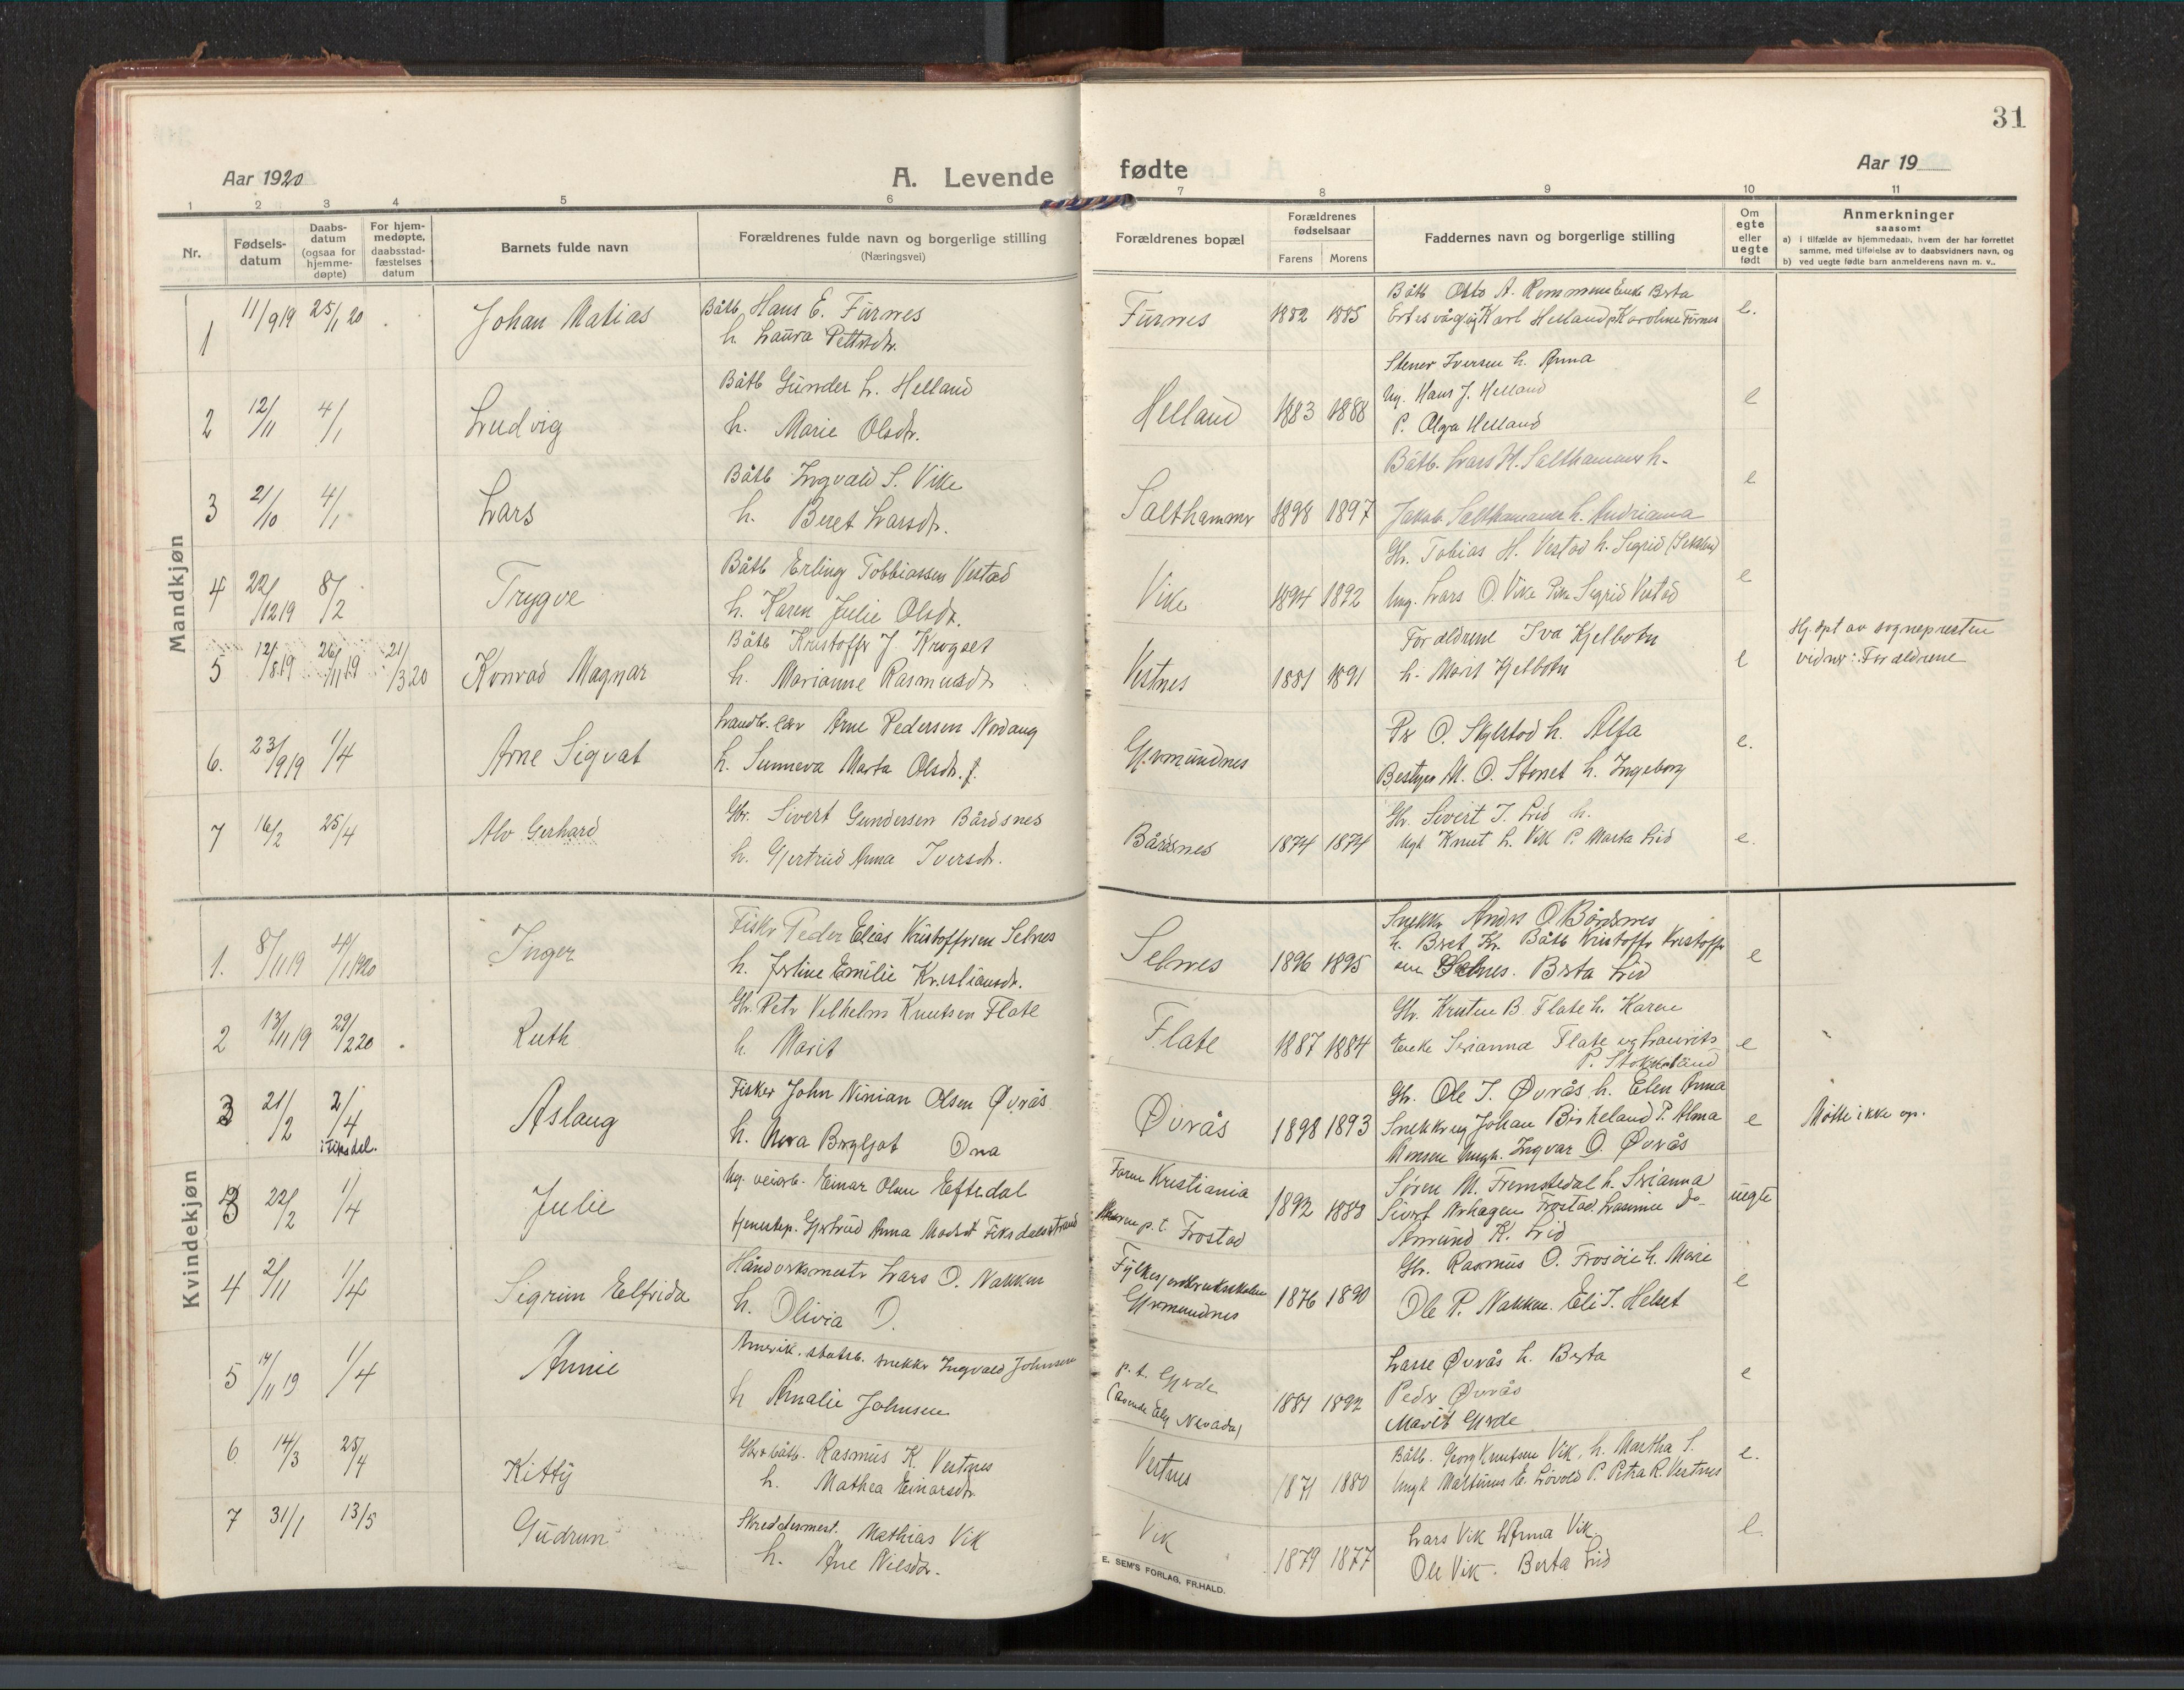 31
Aar 1920
A. Levende fødte
Aar 19
1 2 3 4 5 6 7 8 9 10 11
Nr.
Fødsels-
datum
Daabs-
datum
(ogsaa for
hjemme-
døpte)
For hjem-
medøpte,
daabsstad-
fæstelses
datum
Barnets fulde navn
Forældrenes fulde navn og borgerlige stilling
(Næringsvei)
Forældrenes bopæl
Forældrenes
fødselsaar
Farens Morens
Faddernes navn og borgerlige stilling
Om
egte
eller
uegte
født
Anmerkninger
saasom:
a) i tilfælde av hjemmedaab, hvem der har forrettet
samme, med tilføielse av to daabsvidners navn, og
b) ved uegte fødte barn anmelderens navn m. v..
Mandkjøn
1 11/9 19 25/1 20 Johan Matias
Båtb Hans E. Furnes
h. Laura Pettersdtr.
Furnes 1882 1885
Båtb Otto A. Remmem Enke Berta
Karl Helland p. Karoline Furnes
e.
2 12/11 4/1 Ludvig
Båtb Gunder L. Helland
h. Marie Olsdtr.
Helland 1883 1888
Stener Iversen h. Anna
Ug. Hans J. Helland
P. Olga Helland
e
3 21/10 4/1 Lars
Båtb Ingvald S. Vike
h. Beret Larsdtr.
Salthammer 1898 1897
Båtb. Lars H. Salthammer h.
Jakob Salthammer h. Andriana
e
4 22/12 19 8/2 Trygve
Båtb Erling Tobbiassen Vestad
h. Karen Julie Olsdtr.
Vike 1894 1892
Gbr. Tobias H. Vestad h. Sigrid (Sekken)
Ung. Lars O. Vike Pike Sigrid Vestad
e
5 12/8 19 26/11 19 21/3 20 Konrad Magnar
Båtb Kristoffer J. Krogset
h. Marianne Rasmusdtr
Vestnes 1881 1891
Forældrene Iva Kjelbotn
h. Marit Kjelbotn
e
Hj. døpt av sognepresten
vidner: Forældrene
6. 23/9 19 1/4 Arne Sigvat
Landb. lær Arne Pedersen Nordang
h. Sunneva Marta Olsdtr. f.
Gjermundnes
Pr O. Skylstad h. Alfa
Bestyrer M. O. Stenet h. Ingeborg
e.
7 16/2 25/4 Alv Gerhard
Gbr. Sivert Gundersen Bårdsnes
h. Gjertrud Anna Iversdtr.
Bårdsnes 1874 1874
Gbr. Sivert I. Lid h.
Ugk Knut L. Vik P. Marta Lid
e.
Kvindekjøn
1. 8/11 19 4/1 1920 Inger
Fisker Peder Elias Kristoffersen Selnes
h. Jertine Emilie Kristiansdtr.
Selnes 1896 1895
Snekker Anders O. Bårdsnes
h. Beret Kr. Båtb Kristoffer Kristoffer
sen Selnes. Berta Lid
e
2 13/11 19 29/2 20 Ruth
Gbr. Peter Vilhelm Knutsen Flate
h. Marit
Flate 1887 1884
Gbr. Knuten B. Flate h. Karen
Enke Serianna Flate ug Lauritz
P. Stokkeland
e
3 21/2 2/4 Aslaug
i Fiksdal.
Fisker John Ninian Olsen Øvrås
h. Nora Bergljot Ona
Øvrås 1898 1893
Gbr. Ole I. Øvrås h. Elen Anna
Snekker ug Johan Birkeland P. Alma
Monsen Ungk. Ingvar O. Øvrås
e
Møtte ikke op.
3 22/2 1/4 Julie
Ug. veiarb. Einar Olsen Eftedal
tjenestep. Gjertrud Anna Madsdt Fiksdalsstrand
Faren Kristiania
Moren p.t. Frostad
1892 1888
Søren M. Fremstedal h. Serianna
Sivert Arhagen Frostad. Lasine do
Semund K. Lid
uegte
4 2/11 1/4 Sigrun Elfrida
Håndverksmester Lars O. Nakken
h. Olivia O.
Fylkesjordbruksskolen
Gjermundnes
1876 1890
Gbr. Rasmus O. Frosøie h. Marie
Ole P. Nakken. Eli I. Helset
e
5 14/11 19 1/4 Annie
Amerik. statsb. snekker Ingvald Johnsen
h Amalie Johnsen
p.t. Gjerde
(boende Ely Nevada)
1881 1892
Lasse Øvrås h. Berta
Peder Øvrås
Marit Gjerde
e
6 14/3 25/4 Kitty
Gbr & båtb. Rasmus K. Vestnes
h. Mathea Einarsdtr.
Vestnes 1871 1880
Båtb. Georg Knutsen Vik, h. Martha S.
Ungk Martinus E. Løvold P. Petra R. Vestnes
e.
7 31/1 13/5 Gudrun
Skreddermest. Mathias Vik
h. Ane Nilsdtr.
Vik 1879 1877
Lars Vik h Anna Vik
Ole Vik. Berta Lid
e.
E. SEM'S FORLAG, FR.HALD.